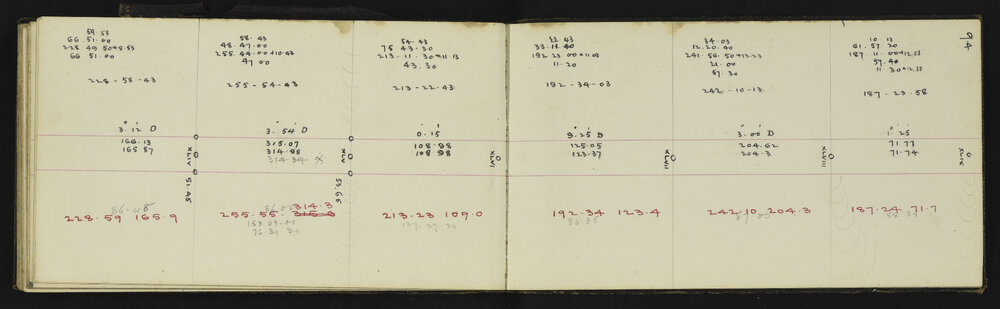 94
59 53
66 51.00
228 49 50+8.53
66 51.00
228-58-43
3.12 D
166.13
165 87
XLIV
51.45
86.48
228.59 165.9
58.43
48.47.00
255.44.00+10.43
47 00
255-54-43
3.54 D
315.07
314.98
314.34 X
XLV
53.66
314.3
255.55. 315.0
153 03.00
76 31 30
54.43
75 43.30
213.11.30+11 13
43.30
213-22-43
0.15
108.98
108 98
XLVI
213-23 109.0
137.27.30
22 43
33.12.40
192 23 00+11.03
11.20
192-34-03
9.25 D
125.05
123.37
XLVII
192.34 123.4
80 35
34.03
12.20.40
241.56.50+13.23
21.00
57.30
242-10-13
3.00 D
204.62
204.3
XLVIII
242.10 204.3
10 13
61.57 20
187.11.00+12.53
57.40
11 30+12.58
187-23-58
1 25
71 77
71-74
XLIX
187.24 71.7
80 35